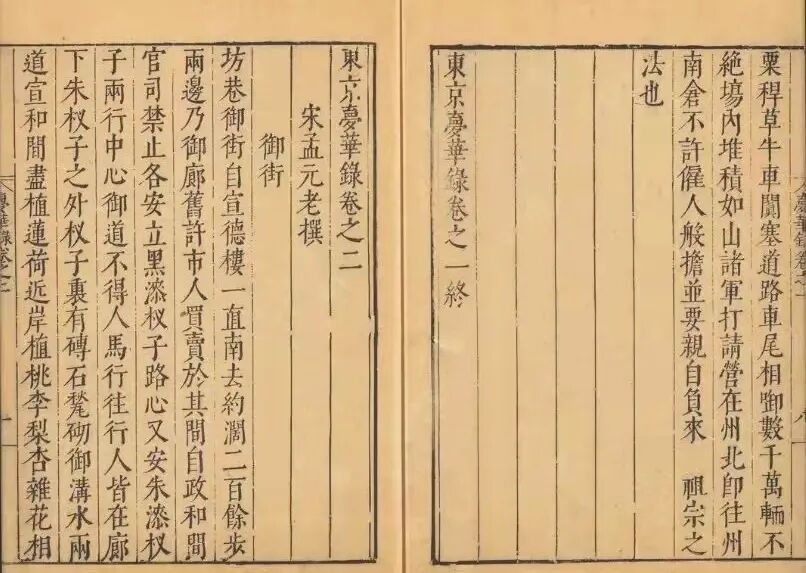 粟稈草牛車闐塞道路車尾相啣數千萬輛不
絶場內堆積如山諸軍打請營在州北卽往州
南倉不許僱人般擔並要親自負來　祖宗之
法也
東京夢華錄卷之一終
東京夢華錄卷之二
宋孟元老撰
御街
坊巷御街自宣德樓一直南去約濶二百餘步
兩邊乃御廊舊許市人買賣於其間自政和間
官司禁止各安立黑漆杈子路心又安朱漆杈
子兩行中心御道不得人馬行往行人皆在廊
下朱杈子之外杈子裏有磚石甃砌御溝水兩
道宣和間盡植蓮荷近岸植桃李梨杏雜花相